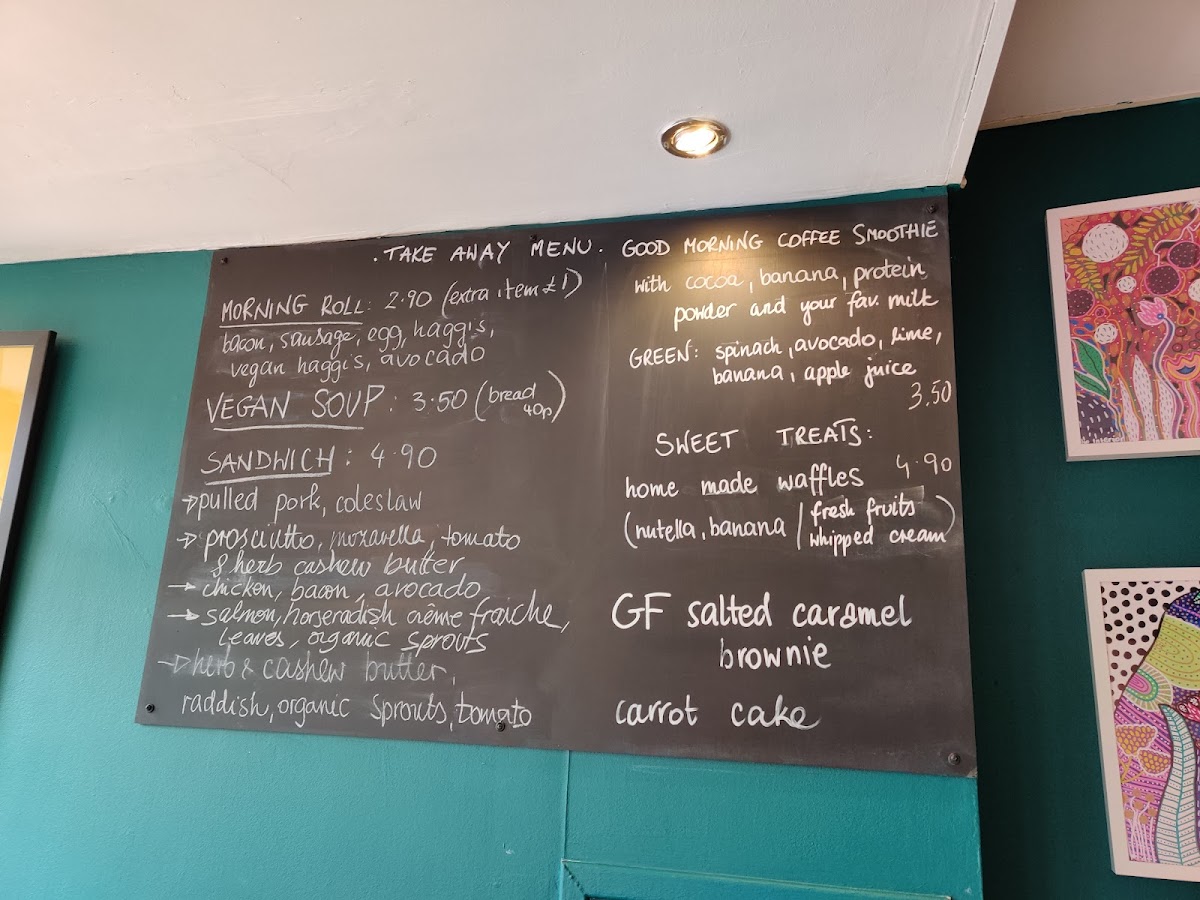 .TAKE AWAY MENU.
MORNING ROLL: 2.90 (extra item £1)
bacon, sausage, egg, haggis,
vegan haggis, avocado
VEGAN SOUP: 3.50 (bread
40p)
SANDWICH: 4.90
→pulled pork, coleslaw
→ prosciutto, mozarella, tomato
& herb cashew butter
→ chicken, bacon, avocado
→ salmon, horseradish crême fraiche,
leaves, organic sprouts
→ herb & cashew butter,
raddish, organic sprouts, tomato
GOOD MORNING COFFEE SMOOTHIE
with cocoa, banana, protein
powder and your fav. milk
GREEN: spinach, avocado, lime,
banana, apple juice
3.50
SWEET TREATS:
home made waffles 4.90
(nutella, banana / fresh fruits
whipped cream)
GF salted caramel
brownie
carrot cake